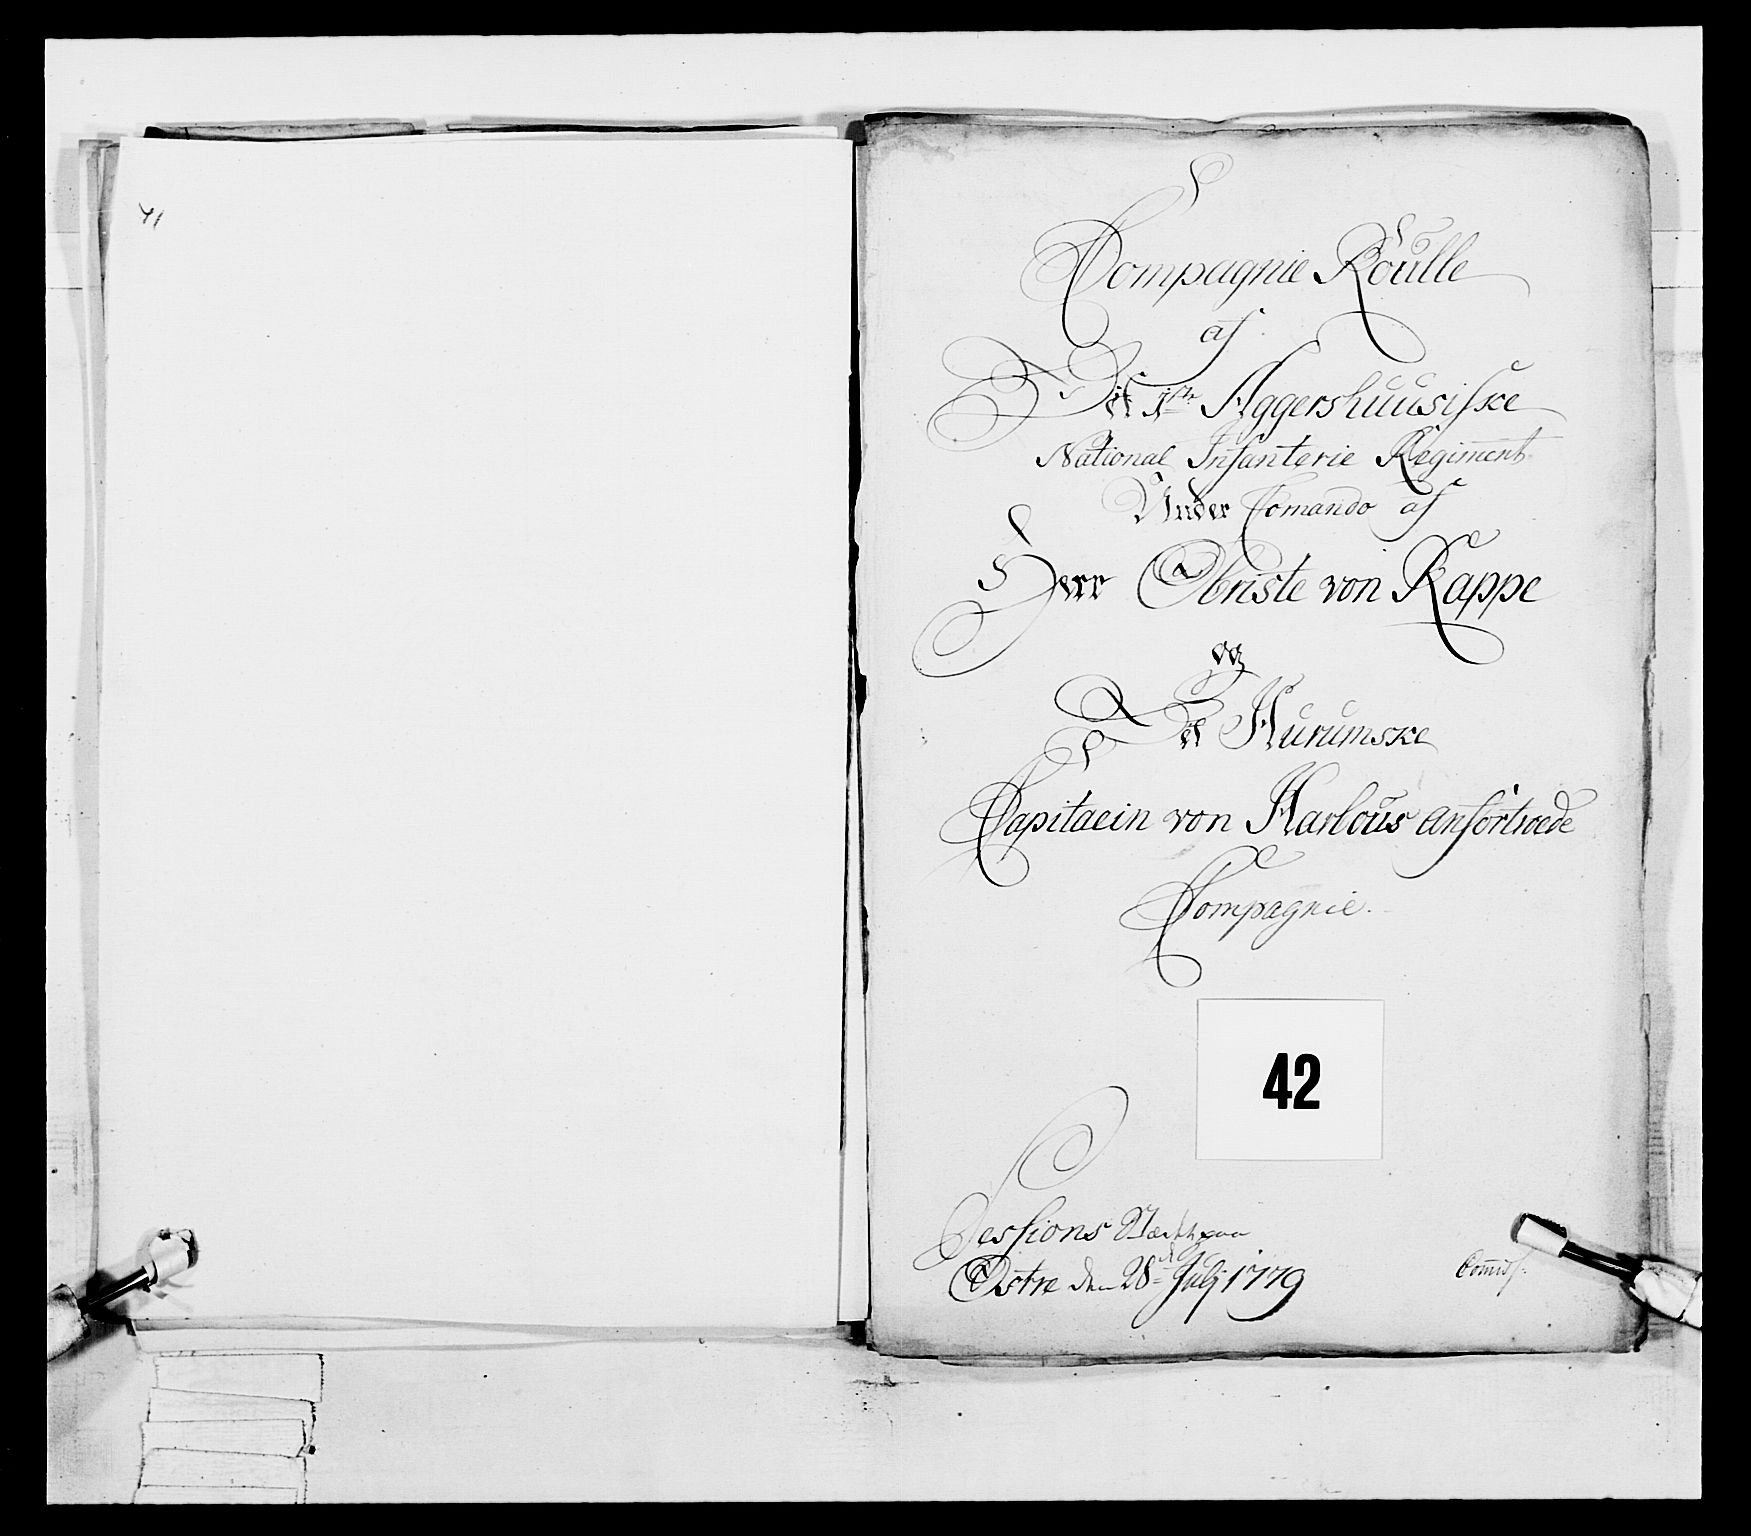 41
Compagnie Roulle
af
Det 1ste Aggershuusiske
National Infanterie Regiment
Under Comando af
Herr Obriste von Kappe
og
Det Hurumske
Capitaein von Harbous anfortroede
Compagnie.
42
Sessions
Østre den 28de Julj 1779
Comiss: